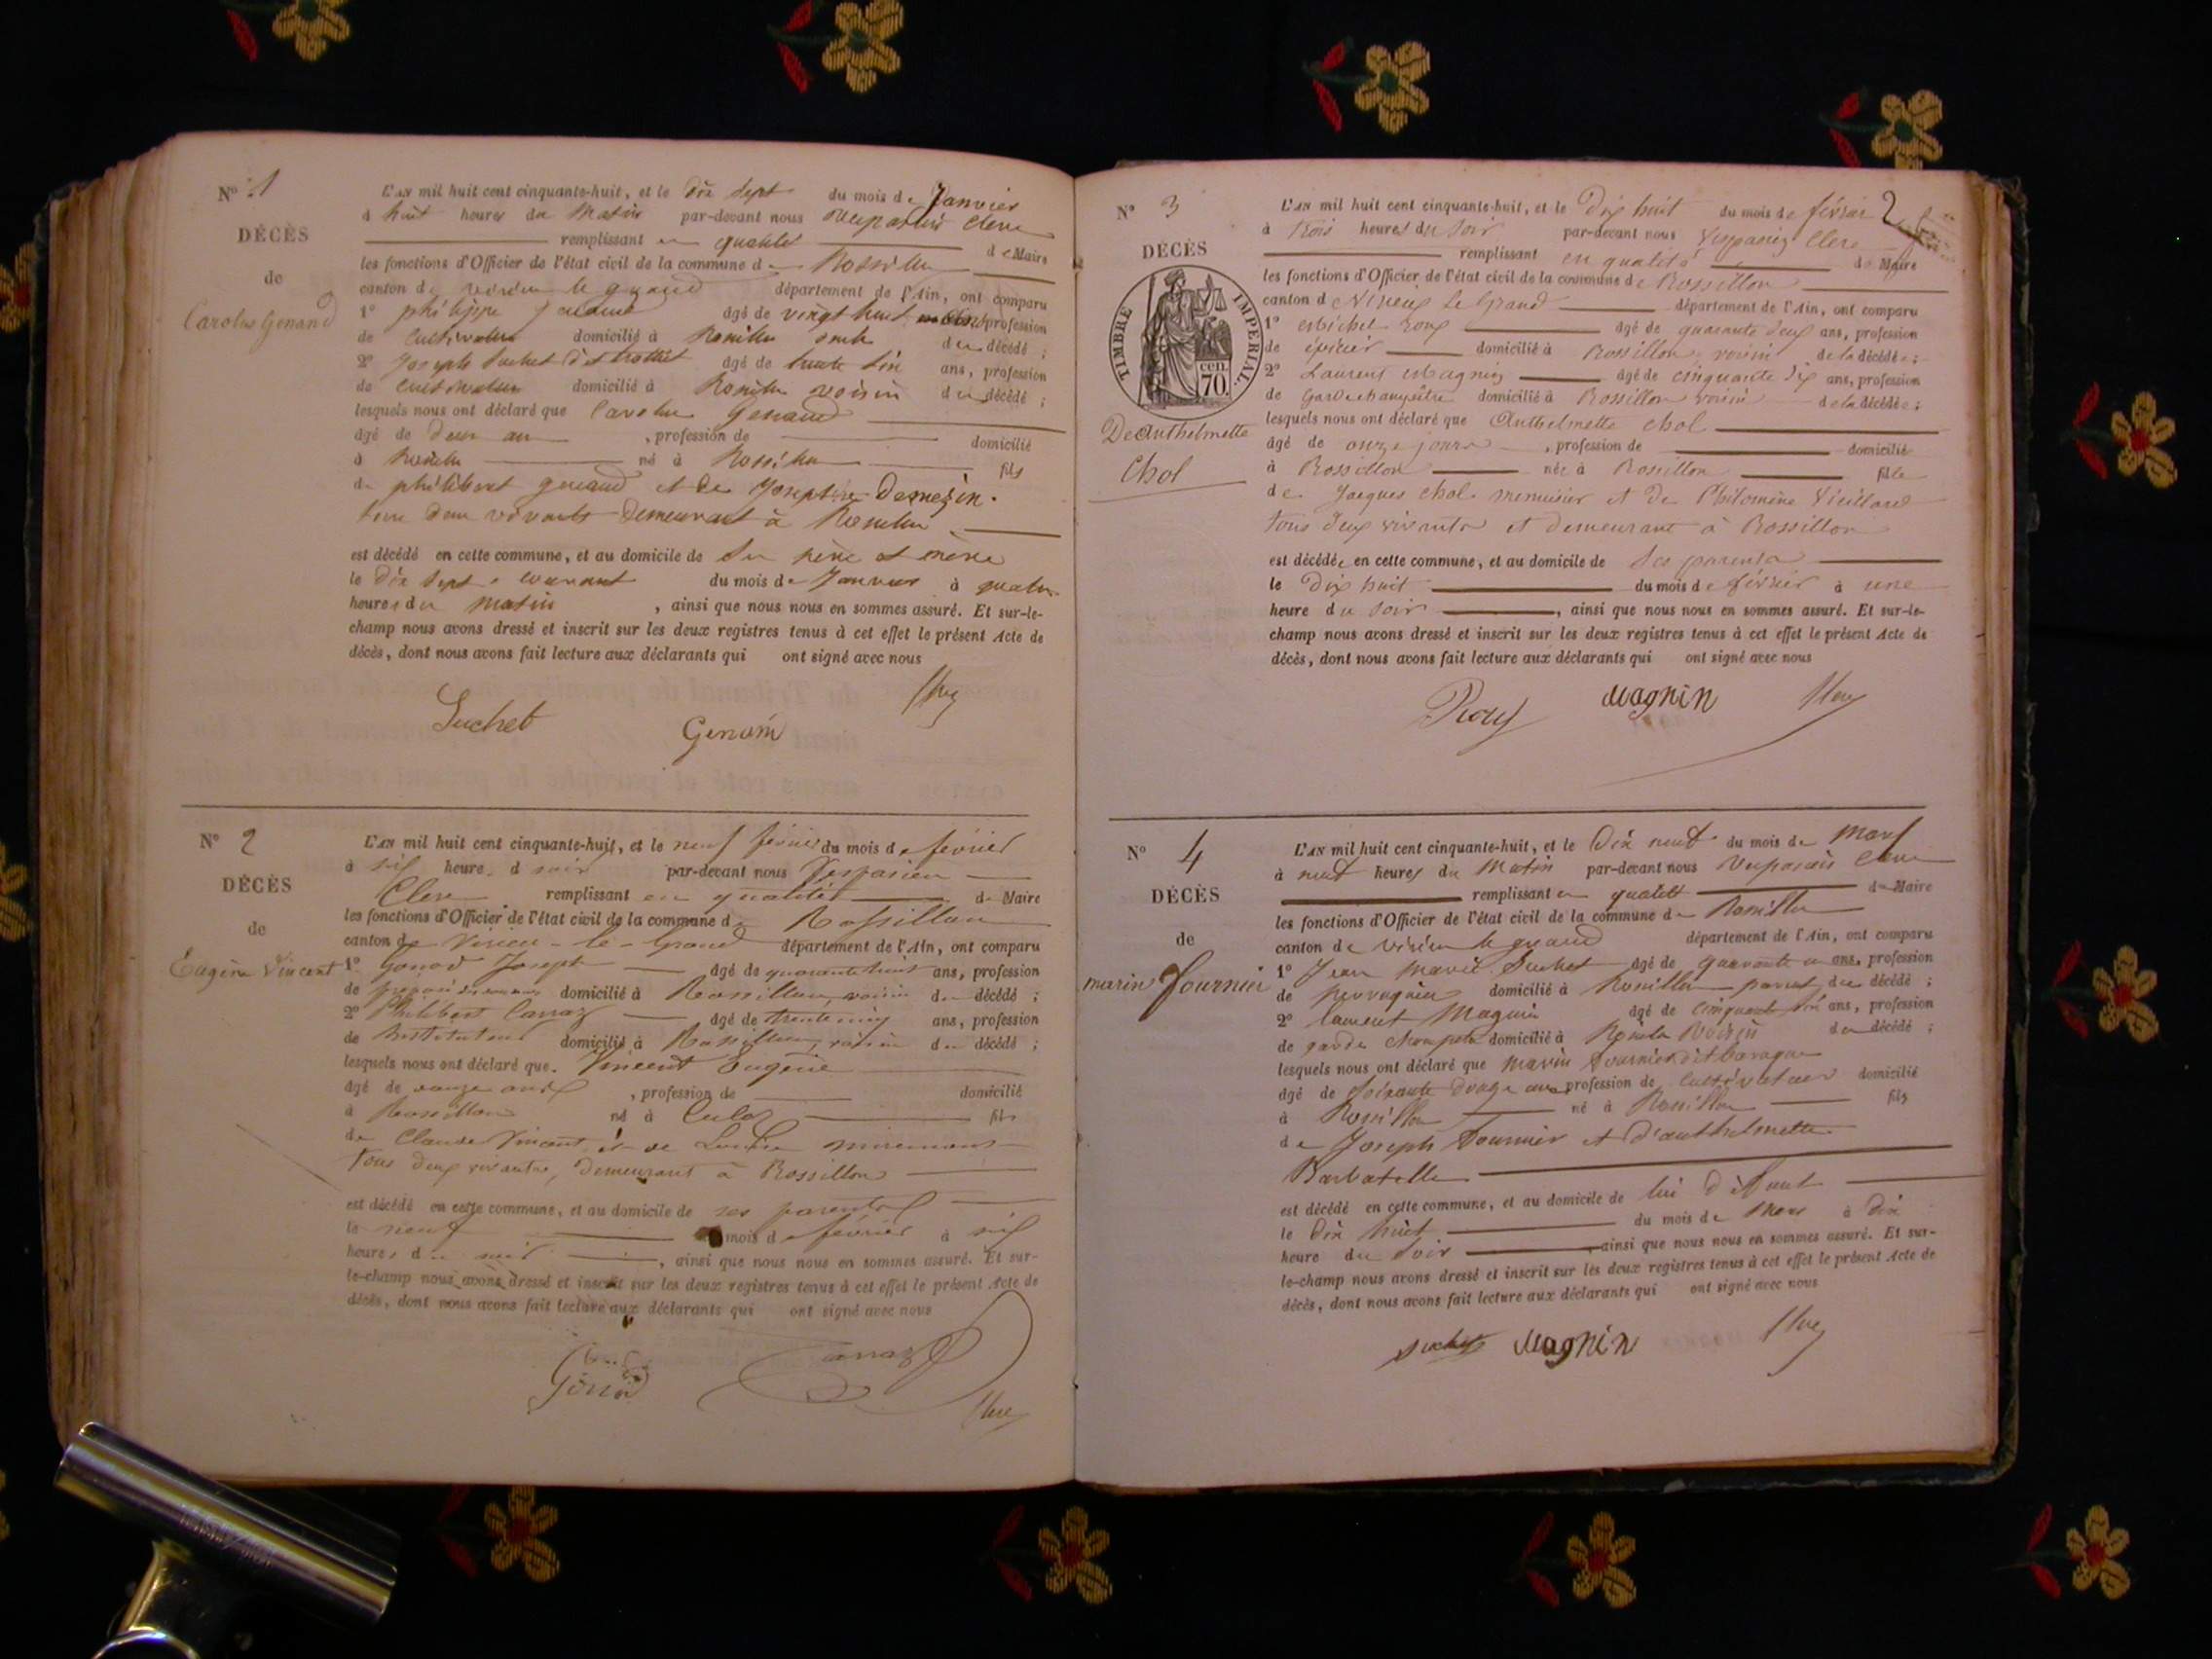 N° 1
DÉCÈS
de
Carolus Genand
L'AN mil huit cent cinquante-huit, et le dix sept du mois de Janvier
à huit heures du Matin par-devant nous Vespasien Clerc
remplissant en qualité de Maire
les fonctions d'Officier de l'état civil de la commune de Rossillon
canton de virieu le grand département de l'Ain, ont comparu
1° philippe genand âgé de vingt huit ans, profession
de Cultivateur domicilié à Rossillon oncle du décédé ;
2° Joseph Suchet dit trottet âgé de trente six ans, profession
de Cultivateur domicilié à Rossillon voisin du décédé ;
lesquels nous ont déclaré que Carolus Genand
âgé de deux an , profession de domicilié
à Rossillon né à Rossillon fils
de philibert genand et de Josephine Demezin.
tous deux vivants Demeurant à Rossillon
est décédé en cette commune, et au domicile de Ses père et mère
le dix sept courant du mois de Janvier à quatre
heures du matin , ainsi que nous nous en sommes assuré. Et sur-le-
champ nous avons dressé et inscrit sur les deux registres tenus à cet effet le présent Acte de
décès, dont nous avons fait lecture aux déclarants qui ont signé avec nous
Suchet Genand Clerc
N° 2
DÉCÈS
de
Eugène Vincent
L'AN mil huit cent cinquante-huit, et le neuf février du mois de février
à six heure d soir par-devant nous Vespasien
Clerc remplissant en qualité de Maire
les fonctions d'Officier de l'état civil de la commune de Rossillon
canton de Virieu-le-Grand département de l'Ain, ont comparu
1° Gonod Joseph âgé de quarante huit ans, profession
de domicilié à Rossillon, voisin du décédé ;
2° Philibert Carraz âgé de trente cinq ans, profession
de Instituteur domicilié à Rossillon, voisin du décédé ;
lesquels nous ont déclaré que Vincent Eugène
âgé de onze ans , profession de domicilié
à Rossillon né à Culoz fils
de Claude Vincent et de Louise
tous deux vivants, demeurant à Rossillon
est décédé en cette commune, et au domicile de ses parents
le neuf mois de février à six
heures du soir , ainsi que nous nous en sommes assuré. Et sur-
le-champ nous avons dressé et inscrit sur les deux registres tenus à cet effet le présent Acte de
décès, dont nous avons fait lecture aux déclarants qui ont signé avec nous
Gonod Carraz Clerc
2
N° 3
DÉCÈS
TIMBRE IMPERIAL.
cen. 70.
De Anthelmette
Chol
L'AN mil huit cent cinquante-huit, et le Dix huit du mois de février
à trois heures du Soir par-devant nous Vespasien Clerc
remplissant en qualité de Maire
les fonctions d'Officier de l'état civil de la commune de Rossillon
canton de Virieu le Grand département de l'Ain, ont comparu
1° Michel Roux âgé de quarante deux ans, profession
de épicier domicilié à Rossillon, voisin de la décédée ;
2° Laurent Magnin âgé de cinquante six ans, profession
de Garde champêtre domicilié à Rossillon voisin de la décédée ;
lesquels nous ont déclaré que Anthelmette Chol
âgé de onze jours , profession de domicilié
à Rossillon née à Rossillon fille
de Jacques Chol menuisier et de Philomène Vieillard
tous deux vivants et demeurant à Rossillon
est décédée en cette commune, et au domicile de Ses parents
le Dix huit du mois de février à une
heure du soir , ainsi que nous nous en sommes assuré. Et sur-le-
champ nous avons dressé et inscrit sur les deux registres tenus à cet effet le présent Acte de
décès, dont nous avons fait lecture aux déclarants qui ont signé avec nous
Roux Magnin Clerc
N° 4
DÉCÈS
de
marin fournier
L'AN mil huit cent cinquante-huit, et le Dix neuf du mois de Mars
à neuf heures du Matin par-devant nous Vespasien Clerc
remplissant en qualité de Maire
les fonctions d'Officier de l'état civil de la commune de Rossillon
canton de virieu le grand département de l'Ain, ont comparu
1° Jean Marie Suchet âgé de quarante un ans, profession
de perruquier domicilié à Rossillon parent du décédé ;
2° laurent Magnin âgé de cinquante six ans, profession
de garde champetre domicilié à Rossillon Voisin du décédé ;
lesquels nous ont déclaré que marin fournier dit
âgé de soixante douze ans profession de Cultivateur domicilié
à Rossillon né à Rossillon fils
de Joseph fournier et d'anthelmette
Barbatelle
est décédé en cette commune, et au domicile de lui défunt
le Dix huit du mois de Mars à dix
heure du soir , ainsi que nous nous en sommes assuré. Et sur-
le-champ nous avons dressé et inscrit sur les deux registres tenus à cet effet le présent Acte de
décès, dont nous avons fait lecture aux déclarants qui ont signé avec nous
Suchet Magnin Clerc